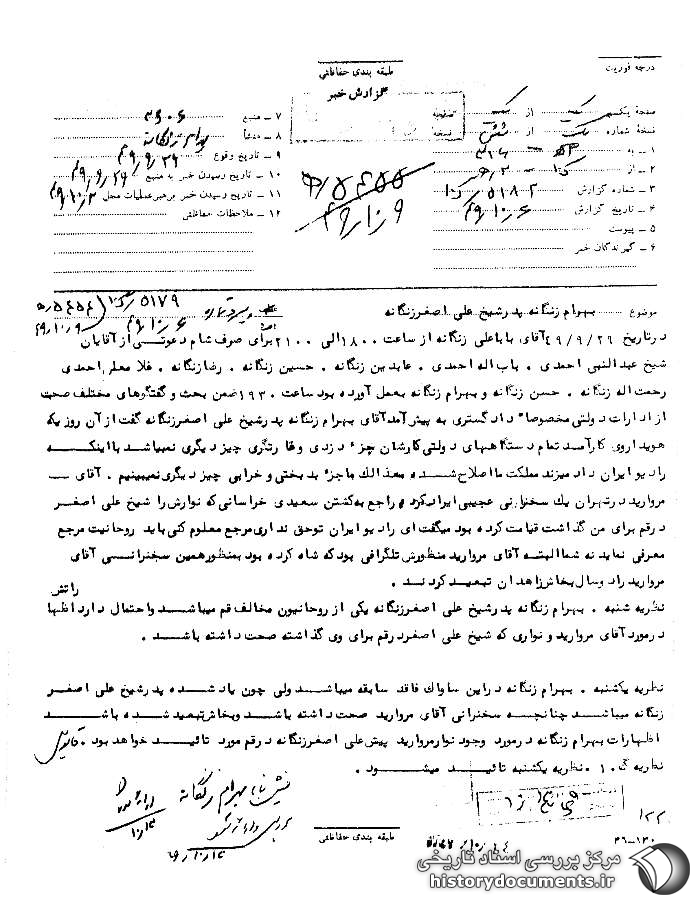 درجه فوریت
طبقه بندی حفاظتی
گزارش خبر
صفحه یک از یک
نسخه شماره یک از شش
۱ ـ به
۲ ـ از
۳ ـ شماره گزارش
۴ ـ تاریخ گزارش
۵ ـ پیوست
۶ ـ گیرندگان خبر
صفحه
نسخه
۷ ـ منبع
۸ ـ منشأ بهرام زنگانه
۹ ـ تاریخ وقوع ۴۹/۹/۲۹
۱۰ ـ تاریخ رسیدن خبر به منبع ۴۹/۹/۲۹
۱۱ ـ تاریخ رسیدن خبر برهبرعملیات محل ۴۹/۱۰/۲
۱۲ ـ ملاحظات حفاظتی
موضوع بهرام زنگانه پدرشیخ علی اصغرزنگانه
درتاریخ ۴۹/۹/۲۹آقای باباعلی زنگانه از ساعت ۱۸۰۰الی ۲۱۰۰برای صرف شام دعوتی از آقایان
شیخ عبدالنبی احمدی . باب اله احمدی . عابدین زنگانه . حسین زنگانه . رضازنگانه . غلامعلی احمدی
رحمت اله زنگانه . حسن زنگانه و بهرام زنگانه بعمل آورده بود ساعت ۱۹۳۰ضمن بحث و گفتگوهای مختلف صحبت
از ادارات دولتی مخصوصا" دادگستری به پیش آمد آقای بهرام زنگانه پدرشیخ علی اصغرزنگانه گفت از آن روزیکه
هویدا روی کارآمد تمام دستگاههای دولتی کارشان جز دزدی و غارتگری چیز دیگری نمیباشد با اینکه
رادیو ایران داد میزند مملکت ما اصلاح شده معذالک ما جز بدبختی و خرابی چیز دیگری نمیبینیم . آقای
مروارید درتهران یک سخنرانی عجیبی ایراد کرد و راجع به کشتن سعیدی خراسانی که نوارش را شیخ علی اصغر
درقم برای من گذاشت قیامت کرده بود میگفت ای رادیو ایران توحق نداری مرجع معلوم کنی باید روحانیت مرجع
معرفی نماید نه شما البته آقای مروارید منظورش تلگرافی بود که شاه کرده بود بمنظورهمین سخنرانی آقای
مروارید را دوسال بخاش زاهدان تبعید کردند .
نظریه شنبه . بهرام زنگانه پدرشیخ علی اصغرزنگانه یکی از روحانیون مخالف قم میباشد و احتمال دارد اظهاراتش
درمورد آقای مروارید و نواری که شیخ علی اصغردرقم برای وی گذاشته صحت داشته باشد .
نظریه یکشنبه . بهرام زنگانه دراین ساواک فاقد سابقه میباشد ولی چون یاد شده پدرشیخ علی اصغر
زنگانه میباشد چنانچه سخنرانی آقای مروارید صحت داشته باشد و بخاش تبعید شده باشد
اظهارات بهرام زنگانه درمورد وجود نوارمروارید پیش علی اصغرزنگانه درقم مورد تائید خواهد بود .
نظریه ک . ۱ . نظریه یکشنبه تائید میشود .
طبقه بندی حفاظتی
۱۳۰-۳۶
مرکز بررسی اسناد تاریخی
historydocuments.ir